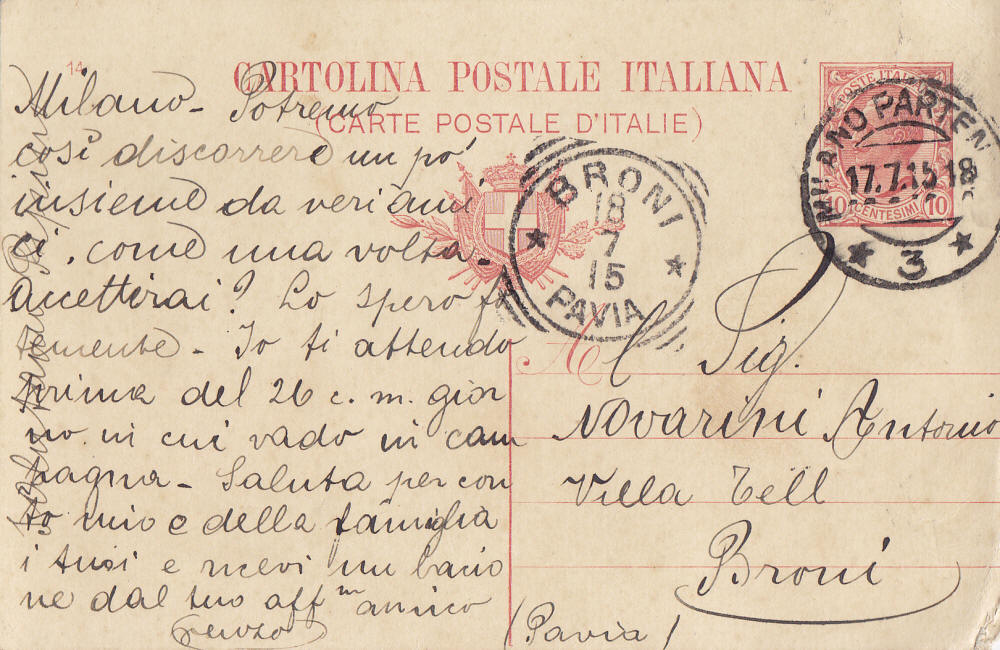 14
CARTOLINA POSTALE ITALIANA
(CARTE POSTALE D'ITALIE)
Milano - Potremo
così discorrere un pó
insieme da veri ami
ci, come una volta.
Accetterai? Lo spero for
temente - Io ti attendo
prima del 26 c. m. gior
no in cui vado in cam
pagna - Saluta per con
to mio e della famiglia
i tuoi e ricevi un bacio
ne dal tuo aff^m amico
Renzo
POSTE ITALIANE
10 CENTESIMI 10
MILANO PARTEN
17.7.15 18
3
BRONI
18
7
15
PAVIA
Al Sig.
Novarini Antonio
Villa Tell
Broni
(Pavia)